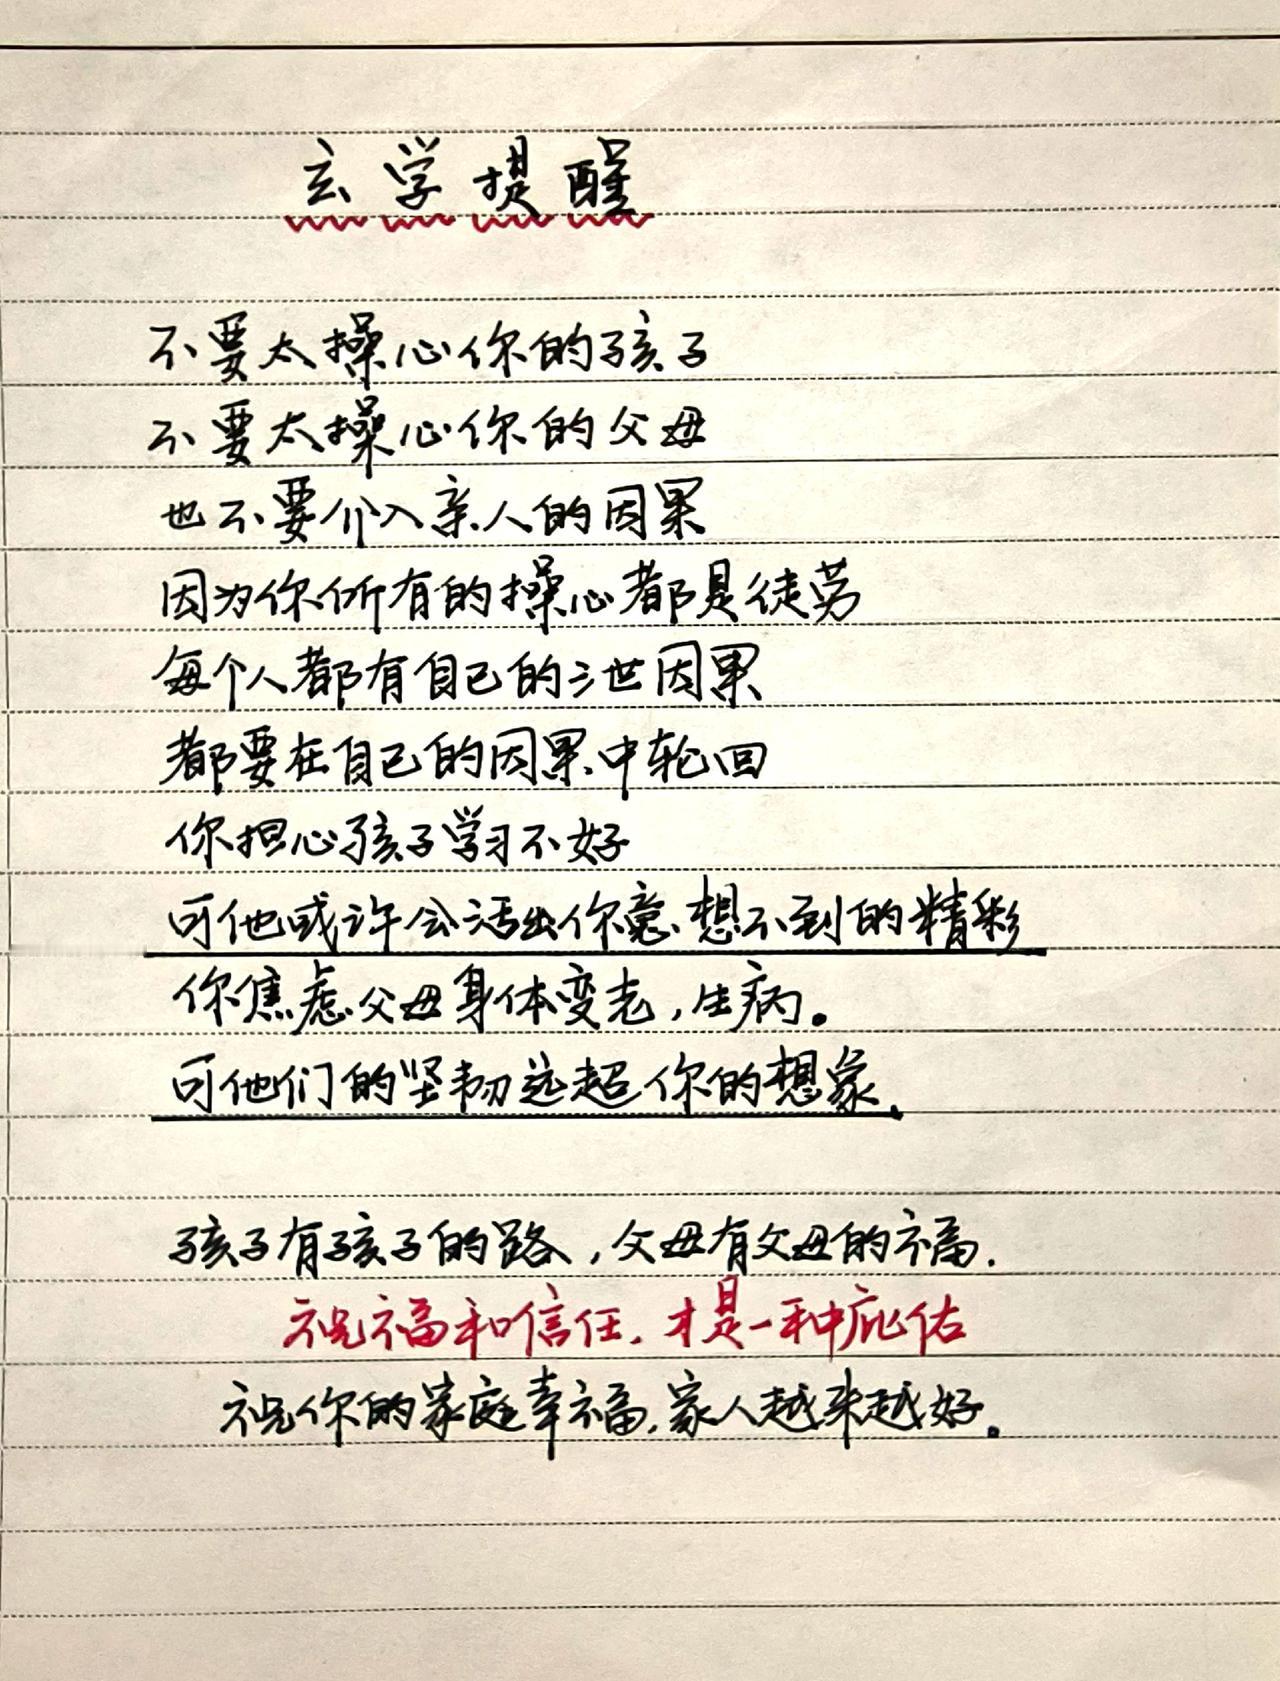 玄学提醒
不要太操心你的孩子
不要太操心你的父母
也不要介入亲人的因果
因为你所有的操心都是徒劳
每个人都有自己的三世因果
都要在自己的因果中轮回
你担心孩子学习不好
可他或许会活出你意想不到的精彩
你焦虑父母身体变老,生病。
可他们的坚韧远超你的想象.
孩子有孩子的路,父母有父母的福.
祝福和信任.才是一种庇佑
祝你的家庭幸福.家人越来越好。